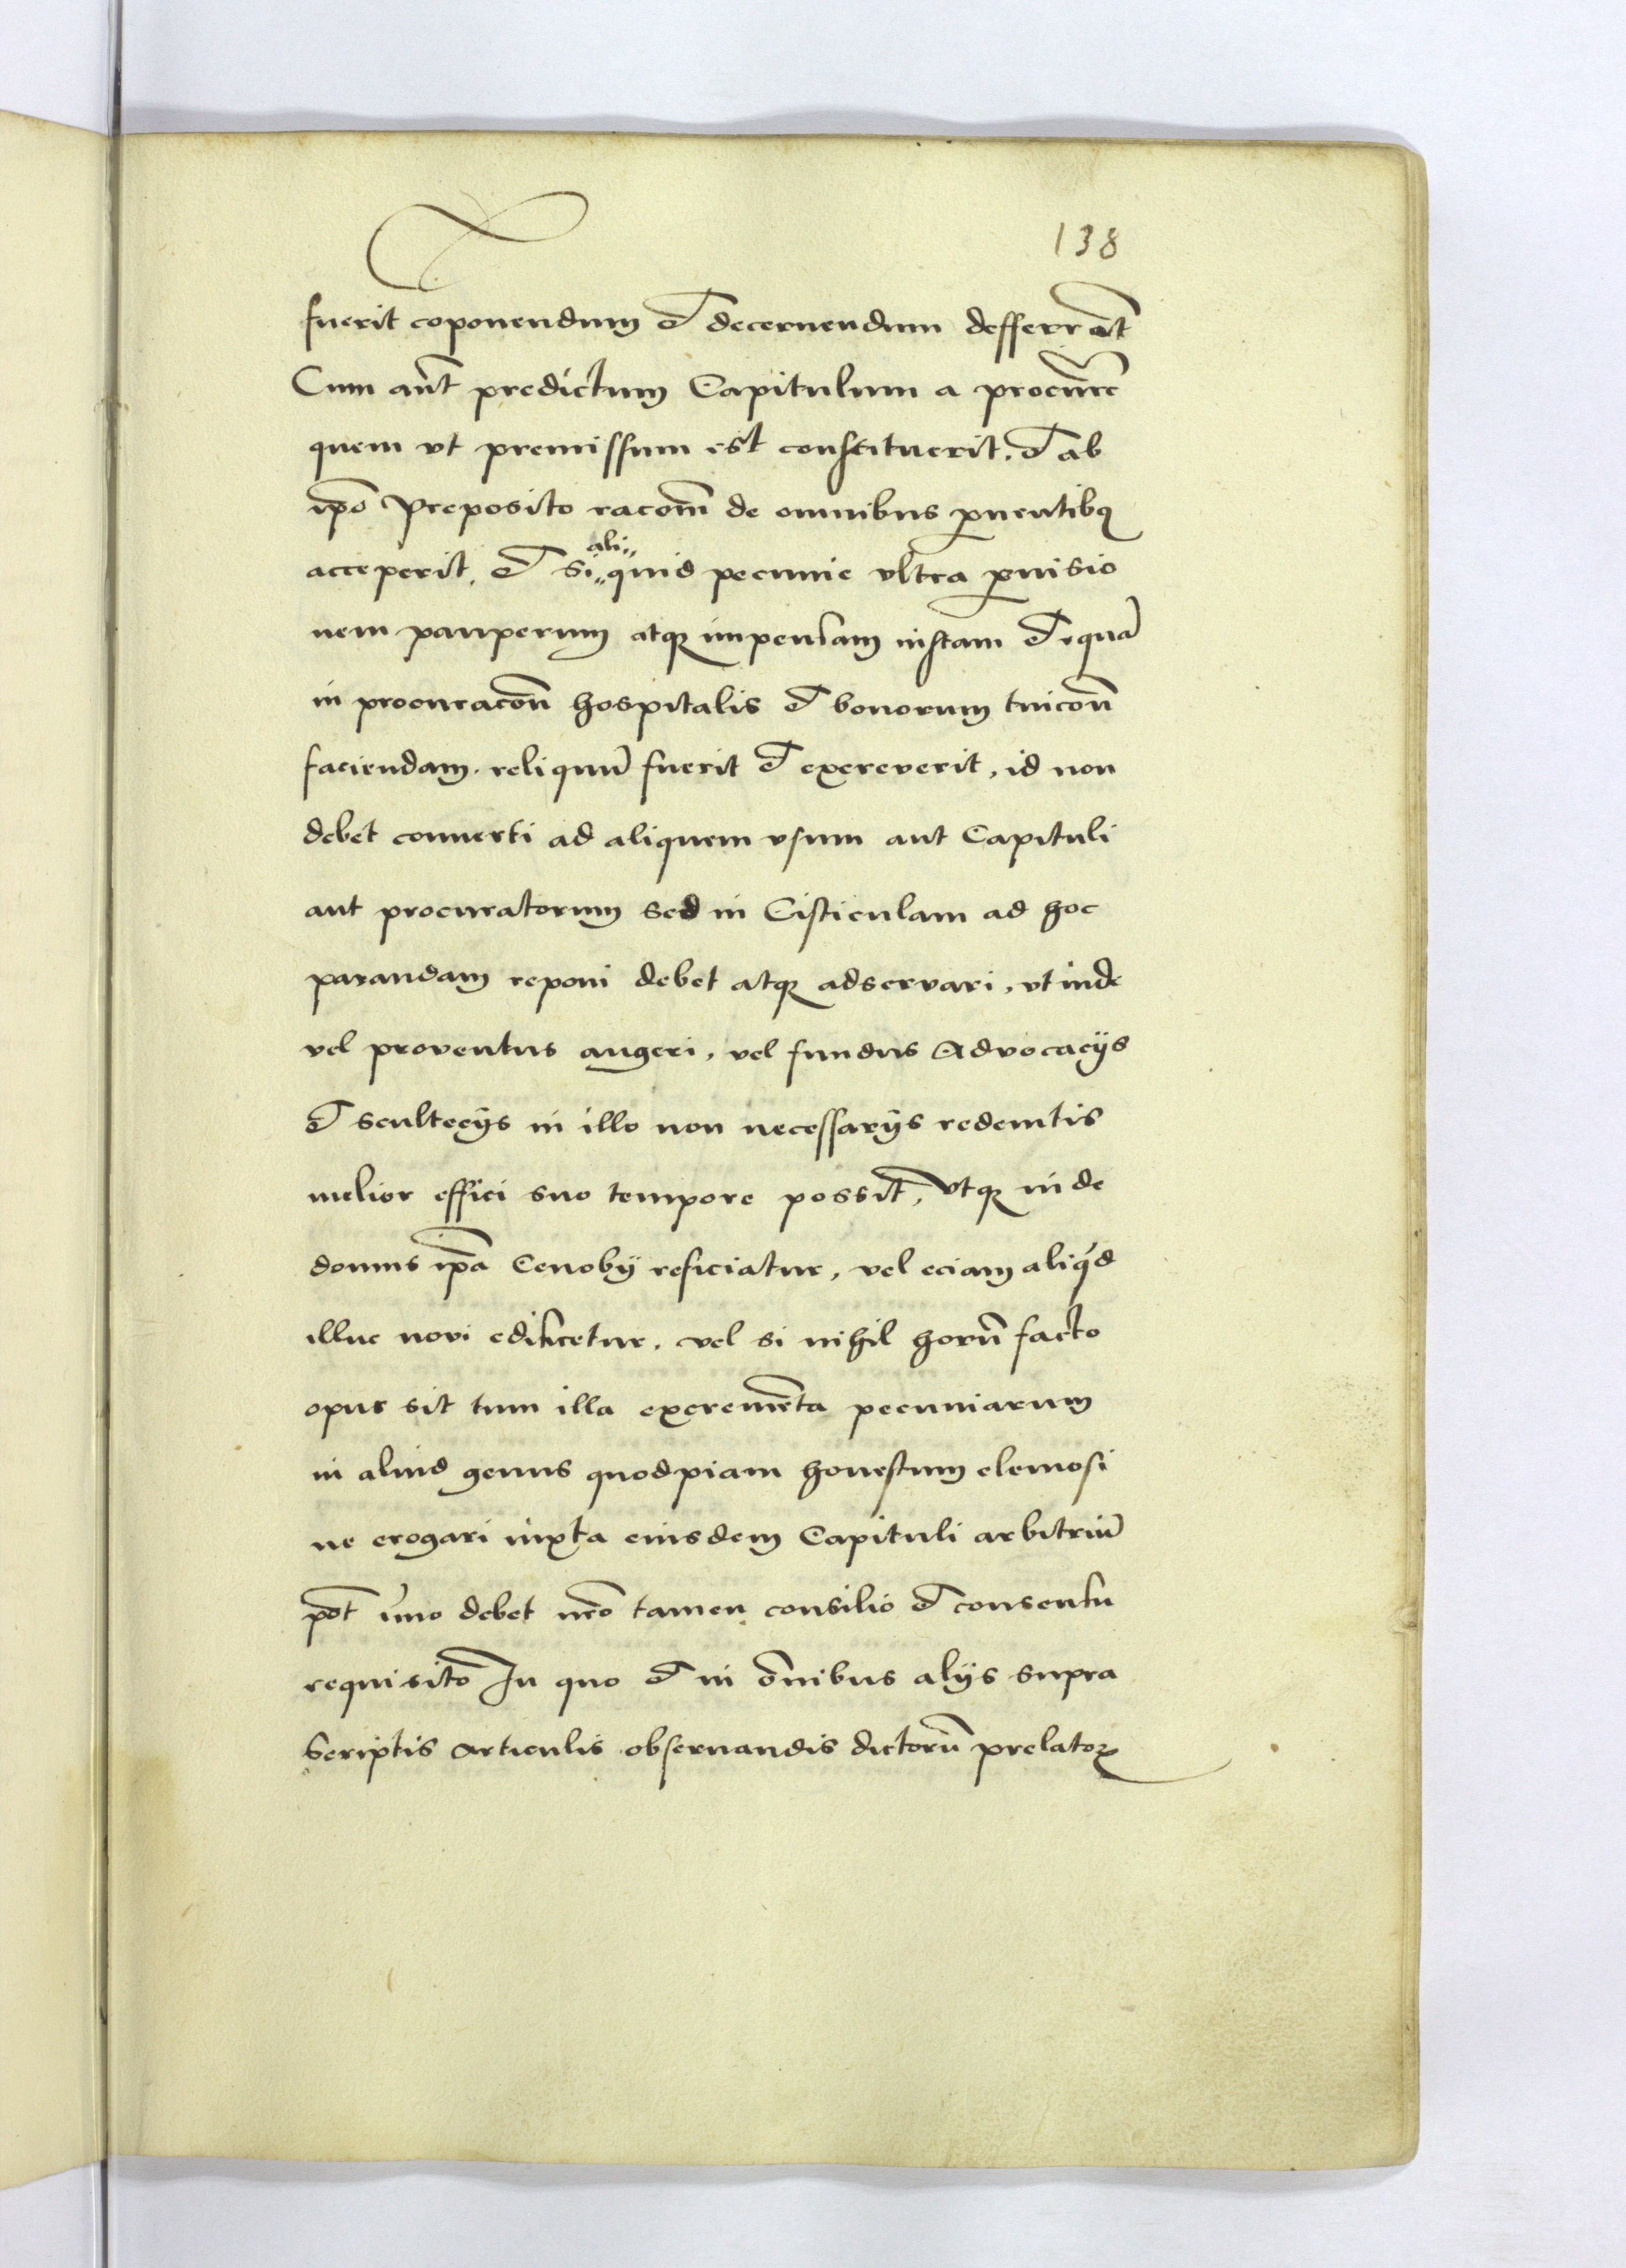 138
fuerit coponendum et decernendum desserrāt
Cum aūt predictum Capitulum a procurē
quem vt premissum est constituerit, et ab
ipō Preposito racoēm de omnibus ꝓuentibꝰ
acceperit, et si aliquid pecunie vltra ꝓuisio
nem pauperum atqꝫ impensam iustam et equā
in procuracoēm hospitalis et bonorum tuicoēm
faciendam, reliquū fuerit et excreverit, id non
debet conuerti ad aliquem vsum aut Capituli
aut procuratorum sed in Cisticulam ad hoc
parandam reponi debet atqꝫ adservari, vt inde
vel proventus augeri, vel fundus Advocacijs
et scultecijs in illo non necessarijs redemtis
melior effici suo tempore possit, vtqꝫ inde
domus ipā Cenobij reficiatur, vel eciam aliqd
illuc novi edificetur, vel si nihil horū facto
opus sit tum illa excremēta pecuniarum
in aliud genus quodpiam honestum elemosi
ne erogari iuxta eiusdem Capituli arbitriū
pōt imo debet nrō tamen consilio et consensu
requisito In quo et in oībus alijs supra
scriptis articulis obseruandis dictorū prelatoꝝ